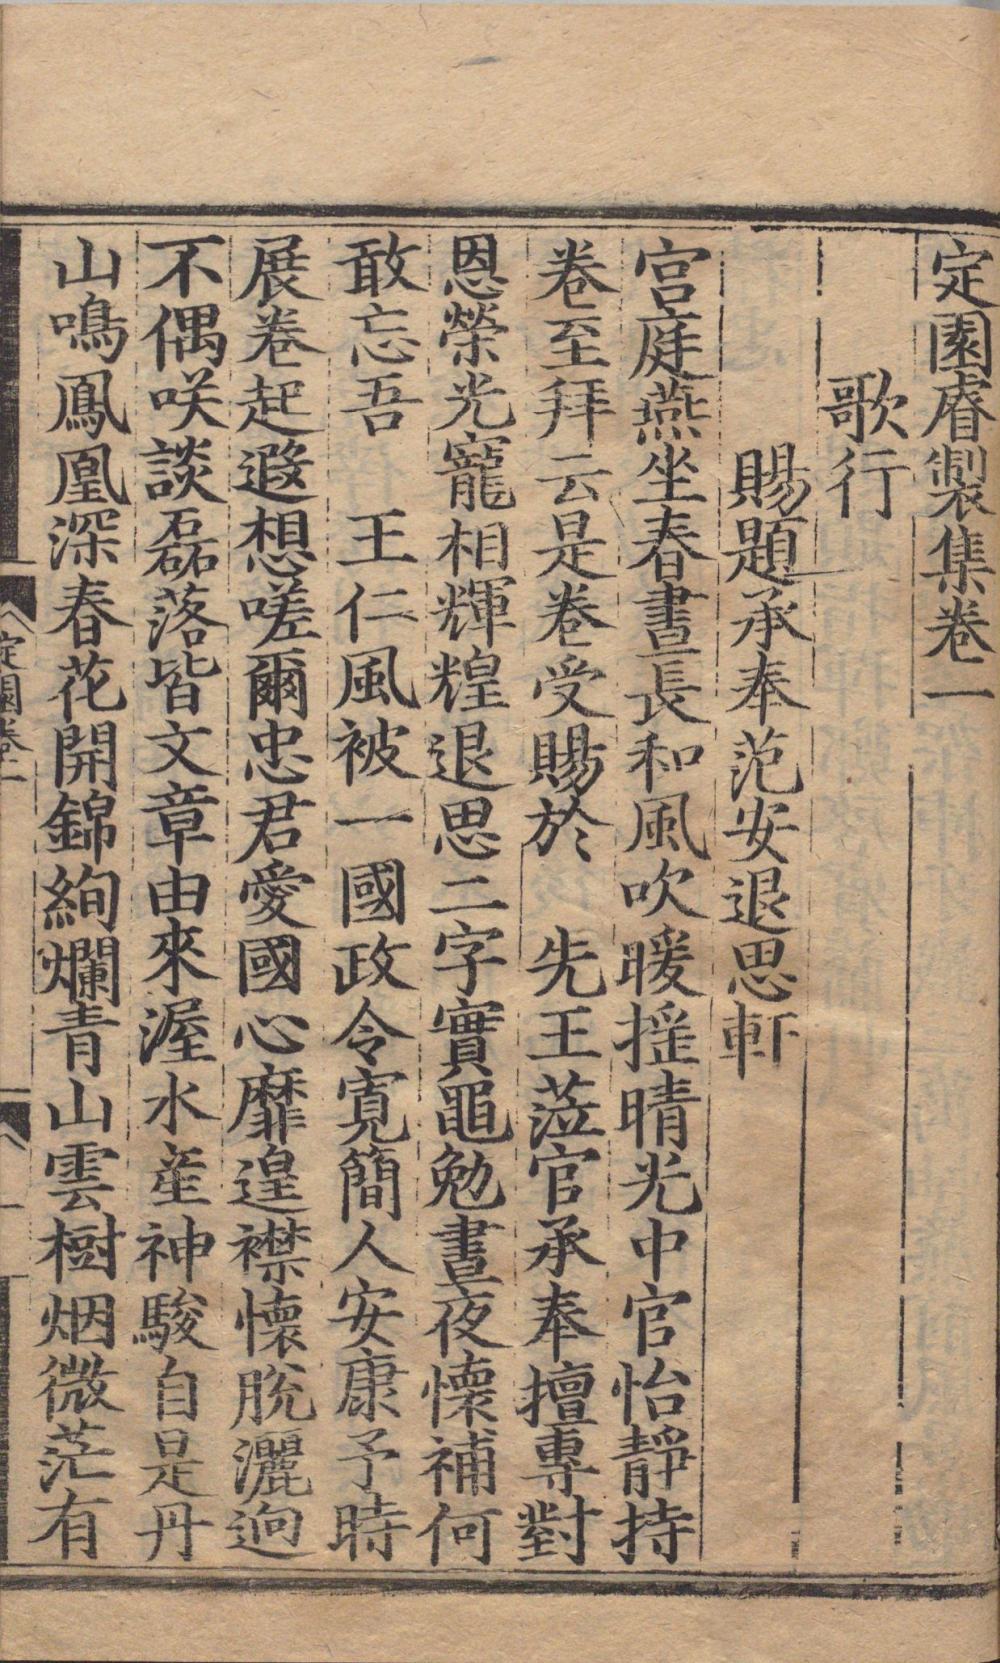 定園睿製集卷一
歌行
賜題承奉范安退思軒
宮庭燕坐春晝長和風吹暖摇晴光中官怡靜持
卷至拜云是卷受賜於　先王蒞官承奉擅專對
恩榮光寵相輝煌退思二字實黽勉晝夜懷補何
敢忘吾　王仁風被一國政令寛簡人安康予時
展卷起遐想嗟爾忠君愛國心靡遑襟懷脫灑迥
不偶咲談磊落皆文章由來渥水産神駿自是丹
山鳴鳳凰深春花開錦絢爛青山雲樹烟微茫有
定園卷一